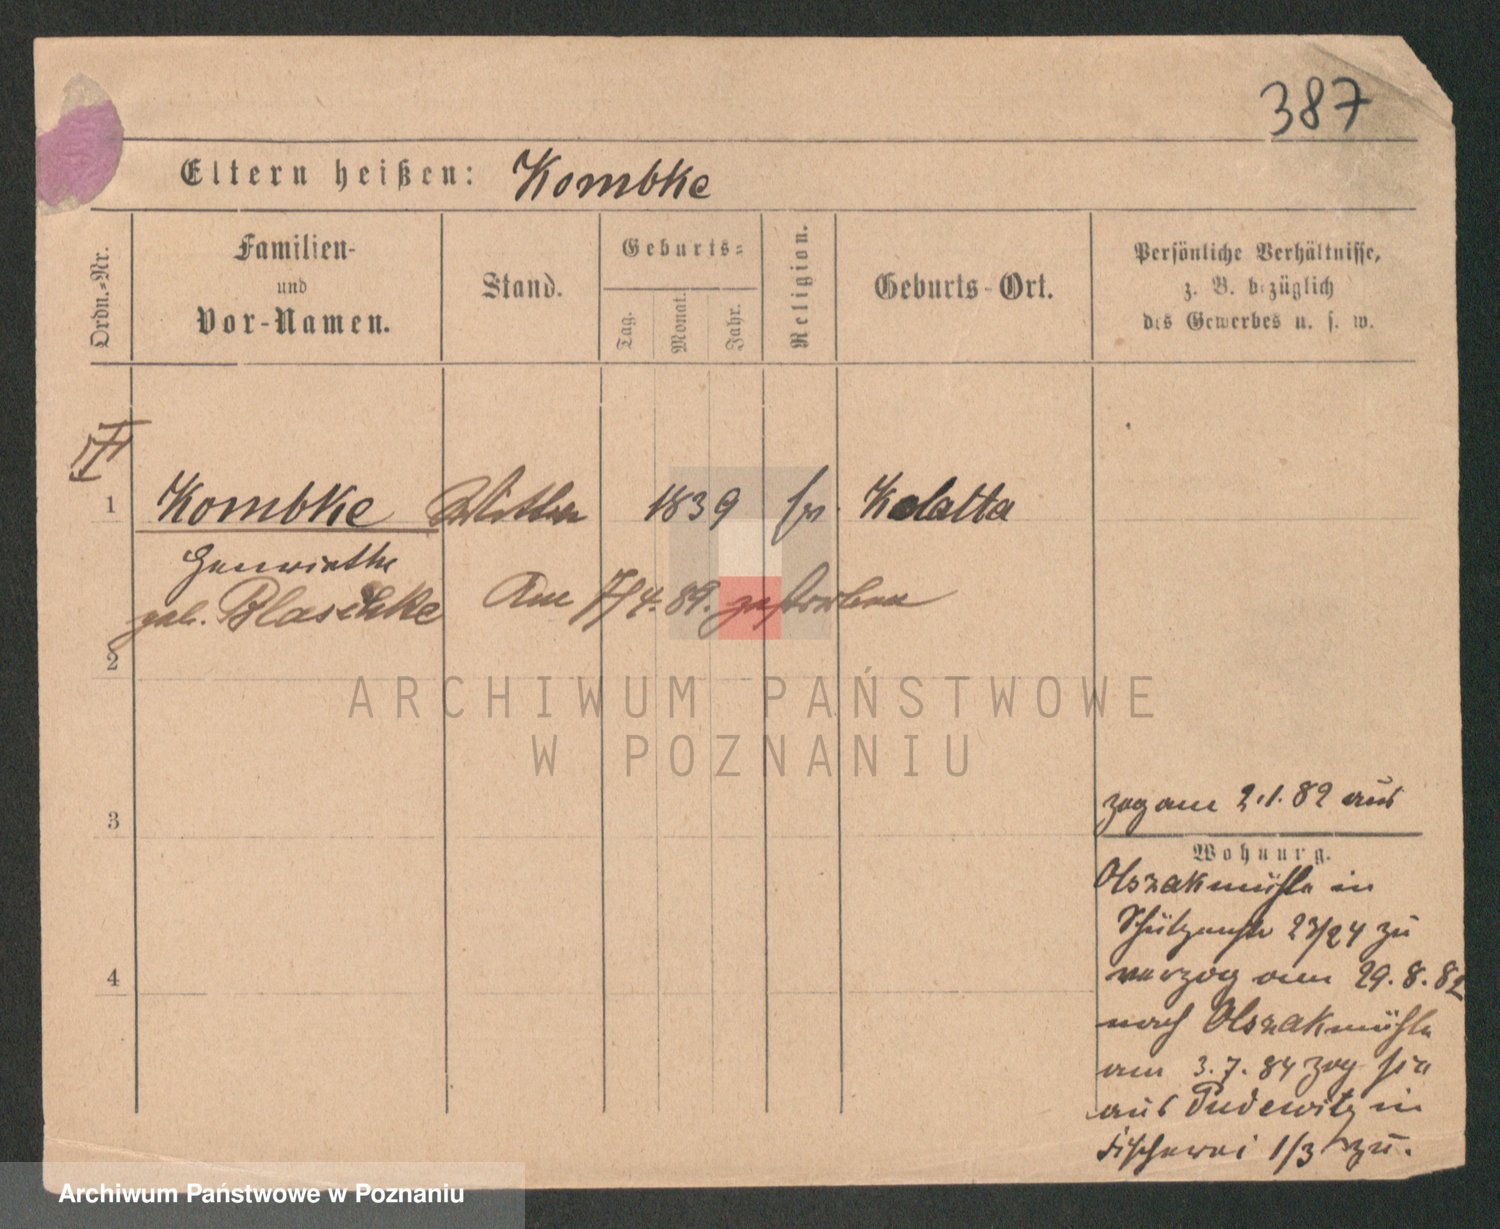 387
Eltern heißen: Kombke
Ordn.-Nr.
Familien-
und
Vor-Namen.
Stand.
Geburts-
Tag.
Monat.
Jahr.
Religion.
Geburts-Ort.
Persönliche Verhältnisse,
z. B. bezüglich
des Gewerbes u. s. w.
1 Kombke 1839 Kolatta
Henriette
geb. Blaschke Am 7/4. 89. gestorben
2
ARCHIWUM PAŃSTWOWE
W POZNANIU
3
4
zog am 2.1.82 aus
Wohnung.
Olszakmühle in
Schützenstr 23/24 zu
verzog am 29.8.82
nach Olszakmühle
am 3.7.84 zog sie
aus Pudewitz in
Fischerei 1/3 zu.
Archiwum Państwowe w Poznaniu